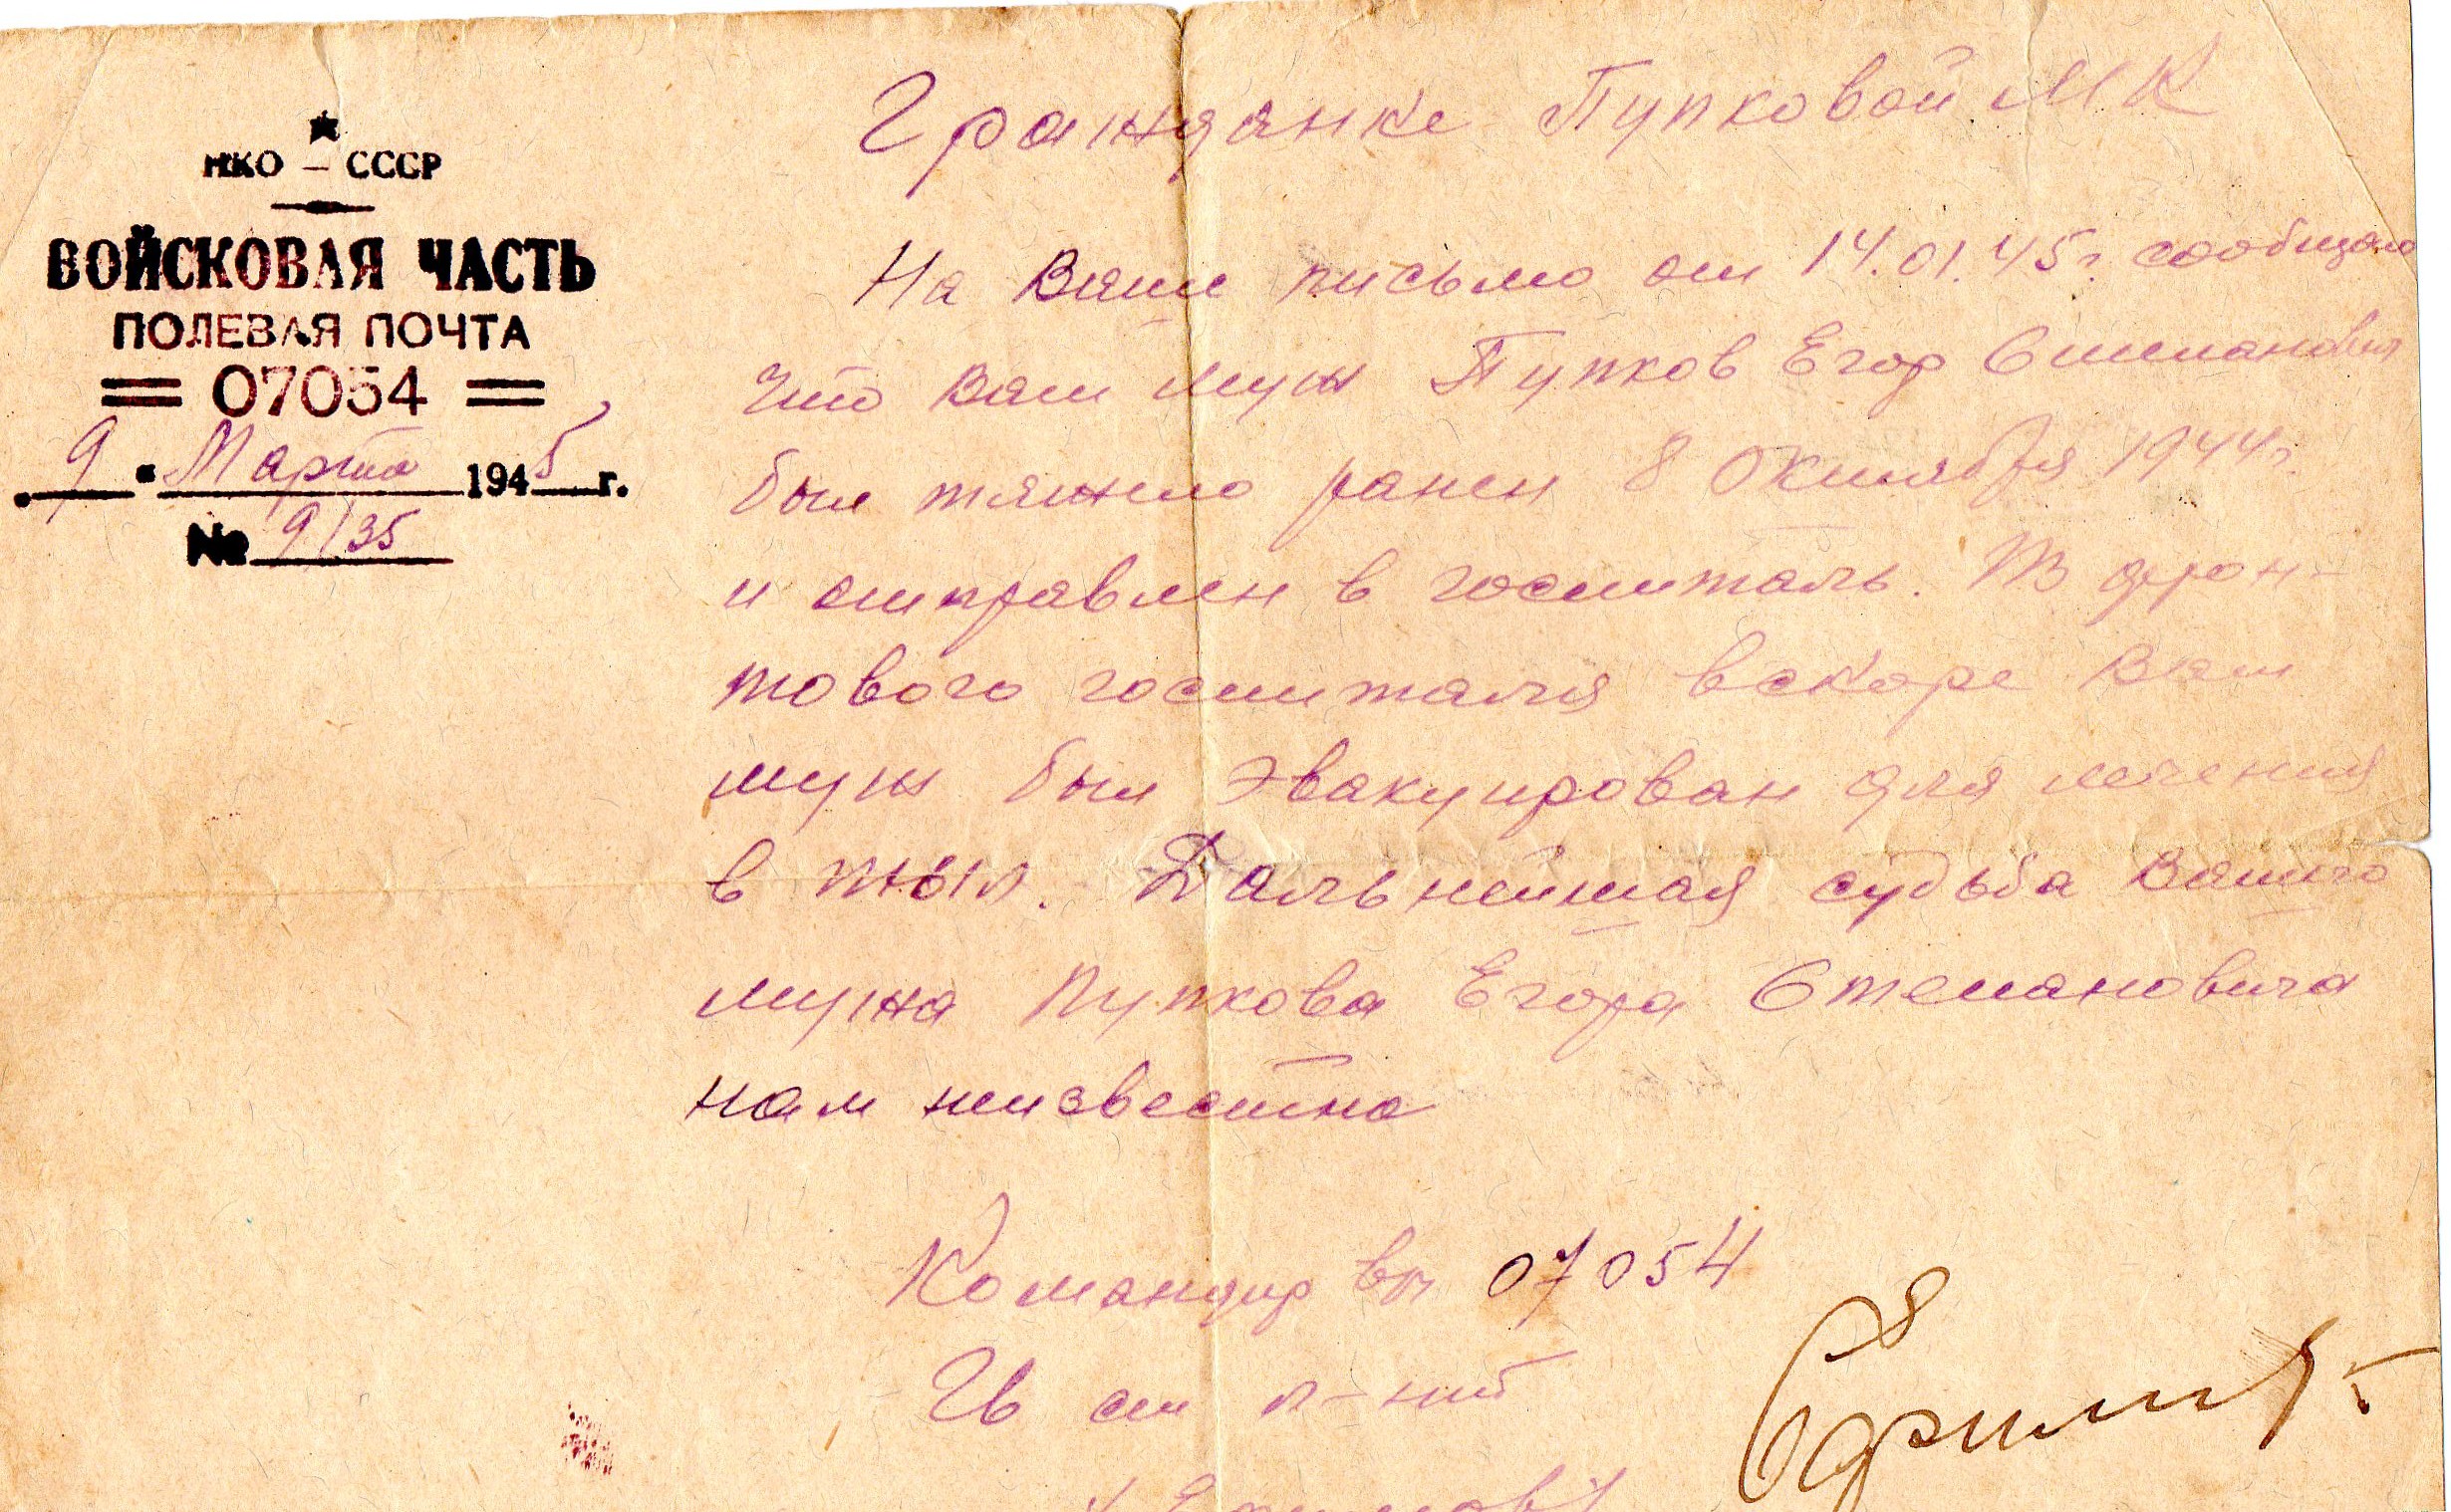 НКО – СССР
ВОЙСКОВАЯ ЧАСТЬ
ПОЛЕВАЯ ПОЧТА
= 07054 =
„ 9 " Марта 1945 г.
№ 9/35
Гражданке Пупковой М К
На Ваше письмо от 14.01.45г. сообщаю
что Ваш муж Пупков Егор Степанович
был тяжело ранен 8 Октября 1944г.
и отправлен в госпиталь. Из фрон-
тового госпиталя вскоре Ваш
муж был эвакуирован для лечения
в тыл. Дальнейшая судьба Вашего
мужа Пупкова Егора Степановича
нам неизвестна
Командир вч 07054
Гв ст л-нт